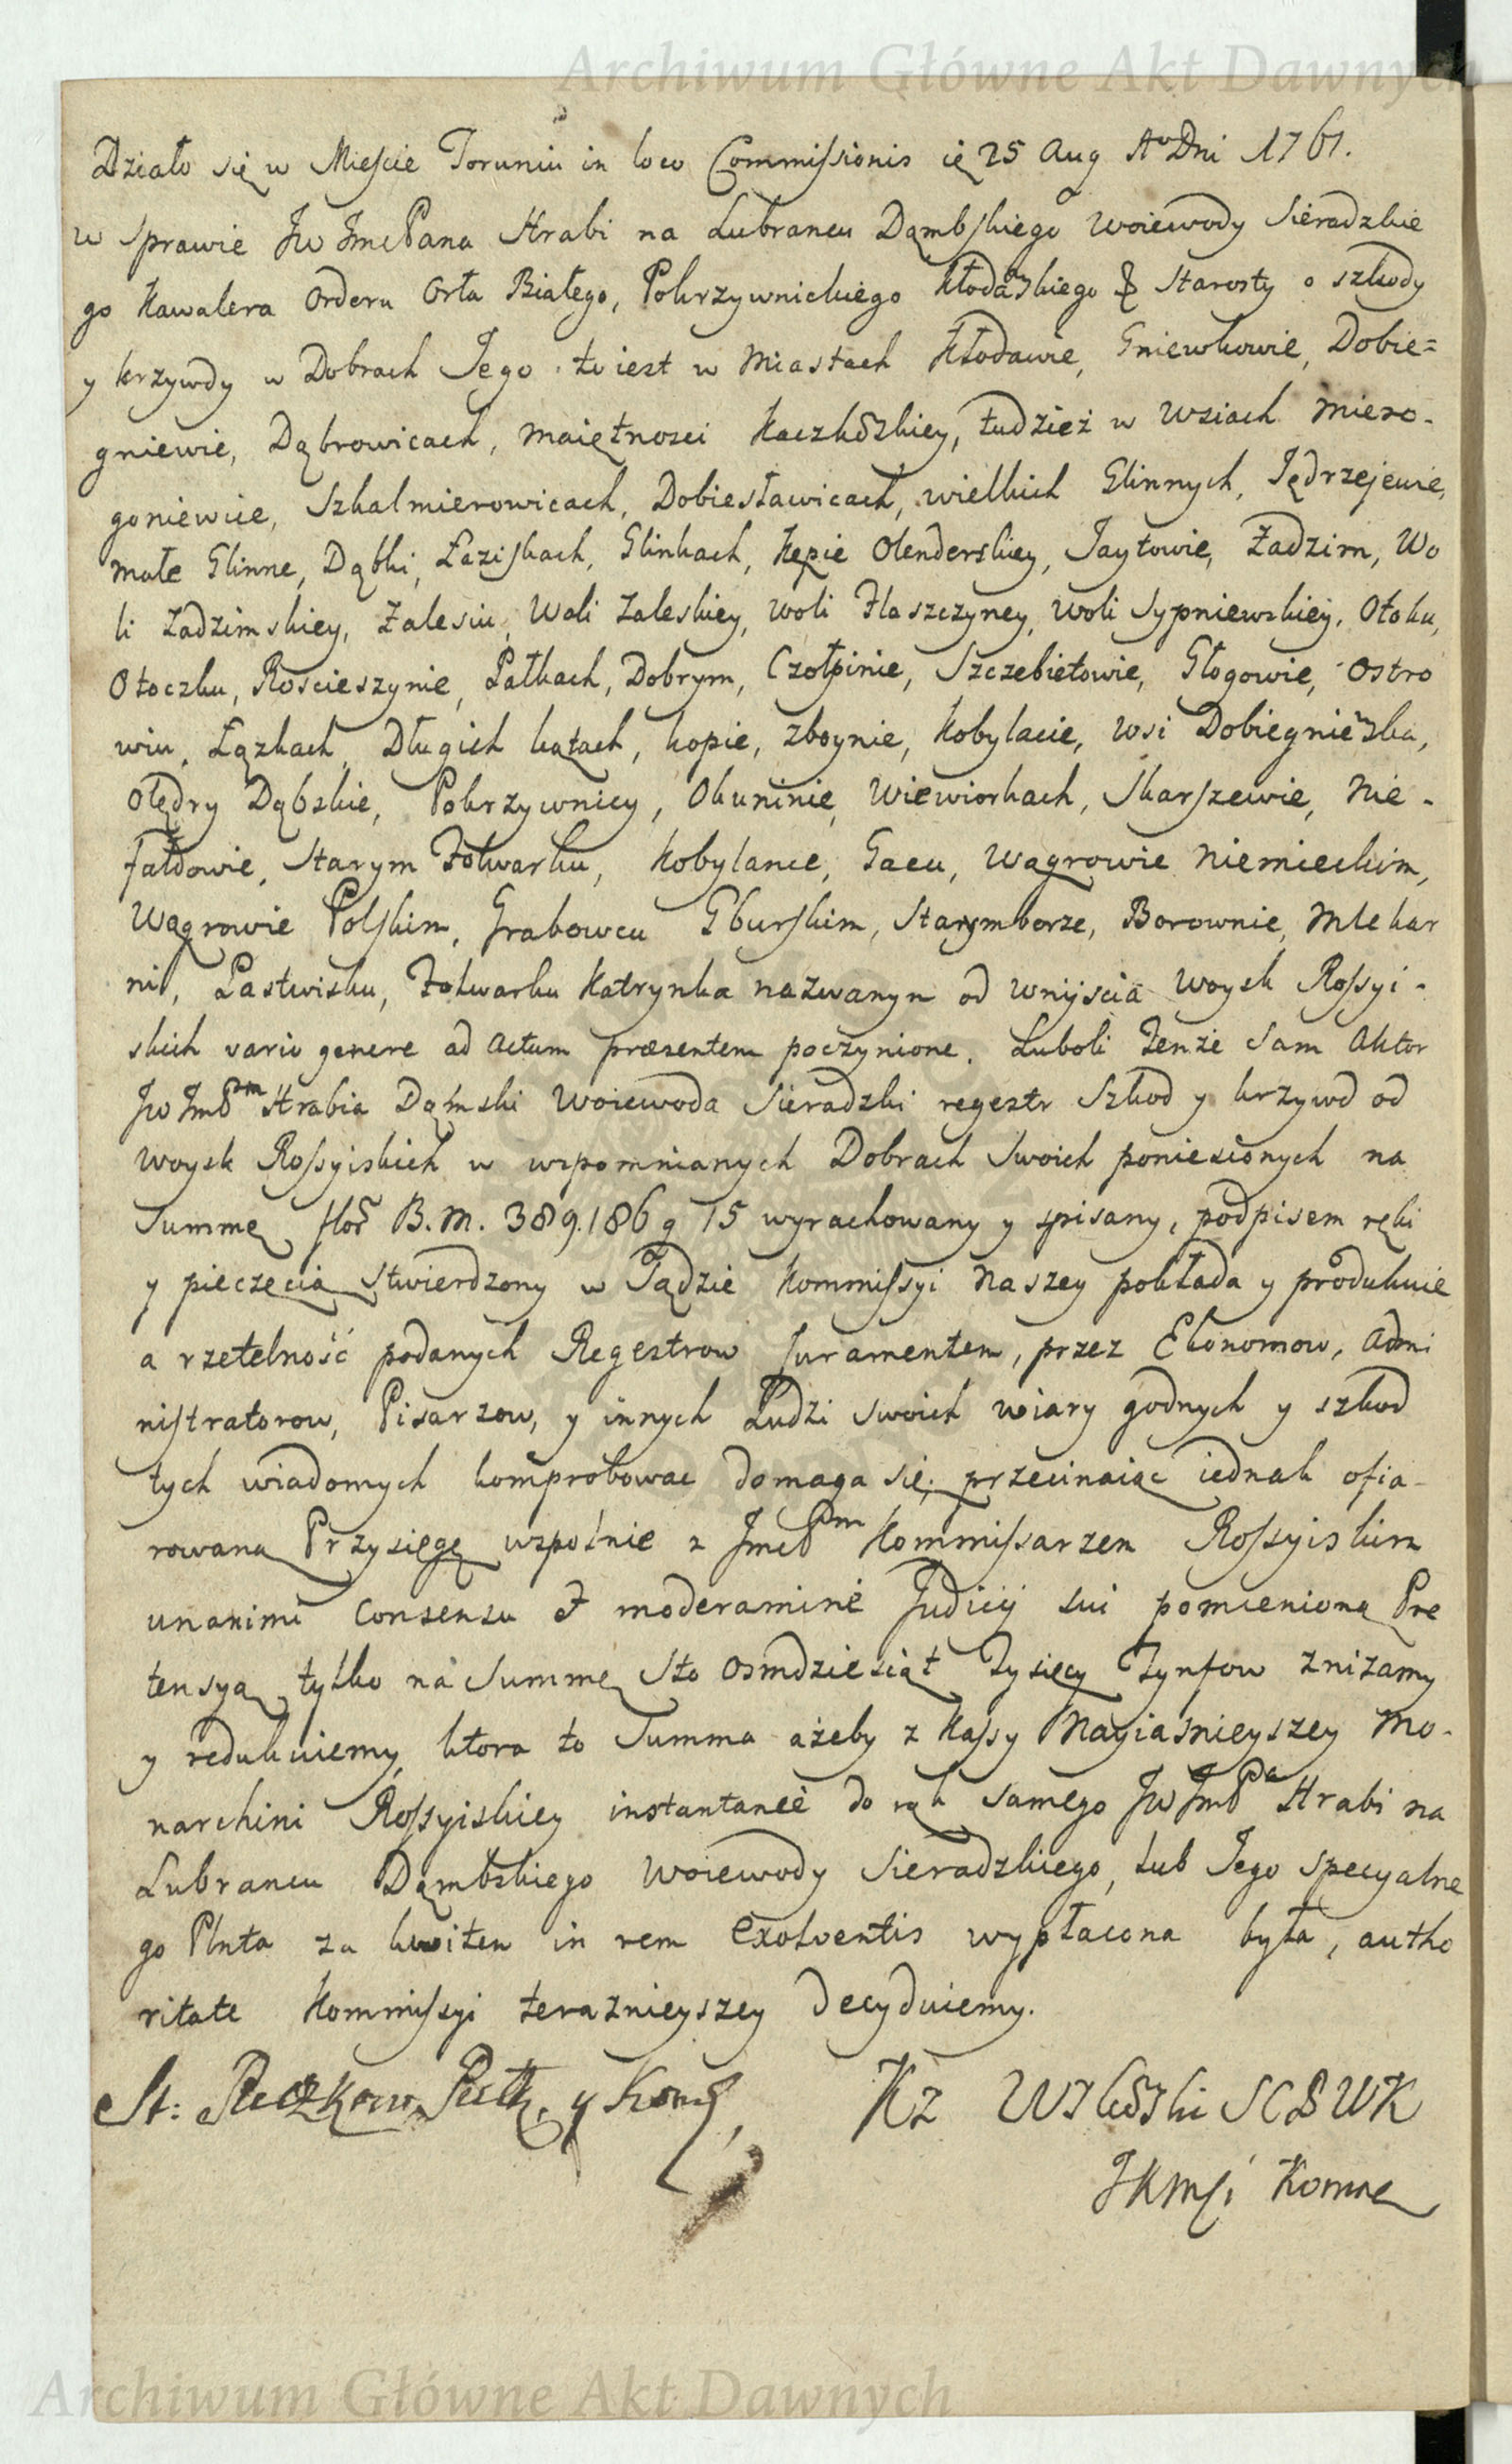 Archiwum Główne Akt Dawnych
Działo się w Mieście Toruniu in loco Commissionis ię 25 Aug Aō Dni 1761.
w sprawie Jw JmcPana Hrabi na Lubrancu Dąmbskiego Woiewody Sieradzkie
go Kawalera Orderu Orła Białego, Pokrzywnickiego Kłodaskiego & Starosty o szkody
y krzywdy w Dobrach Jego to iest w Miastach Kłodawie, Gniewkowie, Dobie=
gniewie, Dąbrowicach, maiętnosci Kaczkoskiey, tudzież w Wsiach Miero-
goniewice, Szkalmierowicach, Dobiesławicach, wielkich Glinnych, Jędrzejewie,
małe Glinne, Dąbki, Łaziskach, Glinkach, Kępie Olenderskiey, Jaytowie, Zadzim, Wo
li Zadzimskiey, Zalesiu, Woli Zaleskiey, Woli Flaszczyney, Woli Sypniewskiey, Otoku,
Otoczku, Roscieszynie, Pałkach, Dobrym, Czołpinie, Szczebietowie, Głogowie, Ostro
wiu, Łązkach, Długich kątach, kopie, Zboynie, Kobylacie, Wsi Dobiegniewska,
Olędry Dąbskie, Pokrzywnicy, Okuninie, Wiewiorkach, Skarszewie, Nie-
fałdowie, Starym Folwarku, Kobylance, Gacu, Wągrowie Niemieckim,
Wągrowie Polskim, Grabowcu Gburskim, Starymborze, Borownie, Mlekar
ni, Pastwisku, Folwarku Katrynka nazwanym od wnijscia Woysk Rossyi-
skich vario genere ad actum præsentem poczynione. Luboli Tenże Sam Aktor
Jw JmP<sup>m</sup> Hrabia Dąmski Woiewoda Sieradzki regestr Szkod y krzywd od
Woysk Rossyiskich w wspomnianych Dobrach Swoich poniesionych na
Summę flor B. M. 389.186 g 15 wyrachowany y spisany, podpisem ręki
y pieczęcią stwierdzony w Sądzie Kommissyi Naszey pokłada y produkuie
a rzetelność podanych Regestrow Juramentem, przez Ekonomow, Admi
nistratorow, Pisarzow, y innych Ludzi swoich wiary godnych y szkod
tych wiadomych komprobowac domaga się; przecinaiąc iednak ofia-
rowaną Przysięgę wspolnie z JmcP<sup>m</sup> Kommissarzem Rossyiskim
unanimi Consensu & moderamine Judicij sui pomienioną Pre
tensyą tylko na Summę Sto Osmdziesiąt Tysięcy Tynfow zniżamy
y redukuiemy, ktora to Summa ażeby z Kassy Nayiasnieyszey Mo-
narchini Rossyiskiey instantanee do rąk samego Jw JmP<sup>a</sup> Hrabi na
Lubrancu Dąmbskiego Woiewody Sieradzkiego, lub Jego specyalne
go Plnta za kwitem in rem Exolventis wypłacona była, autho
ritate Kommissyi terazniejszey Decyduiemy.
St:
JKMsi Komm
Archiwum Główne Akt Dawnych